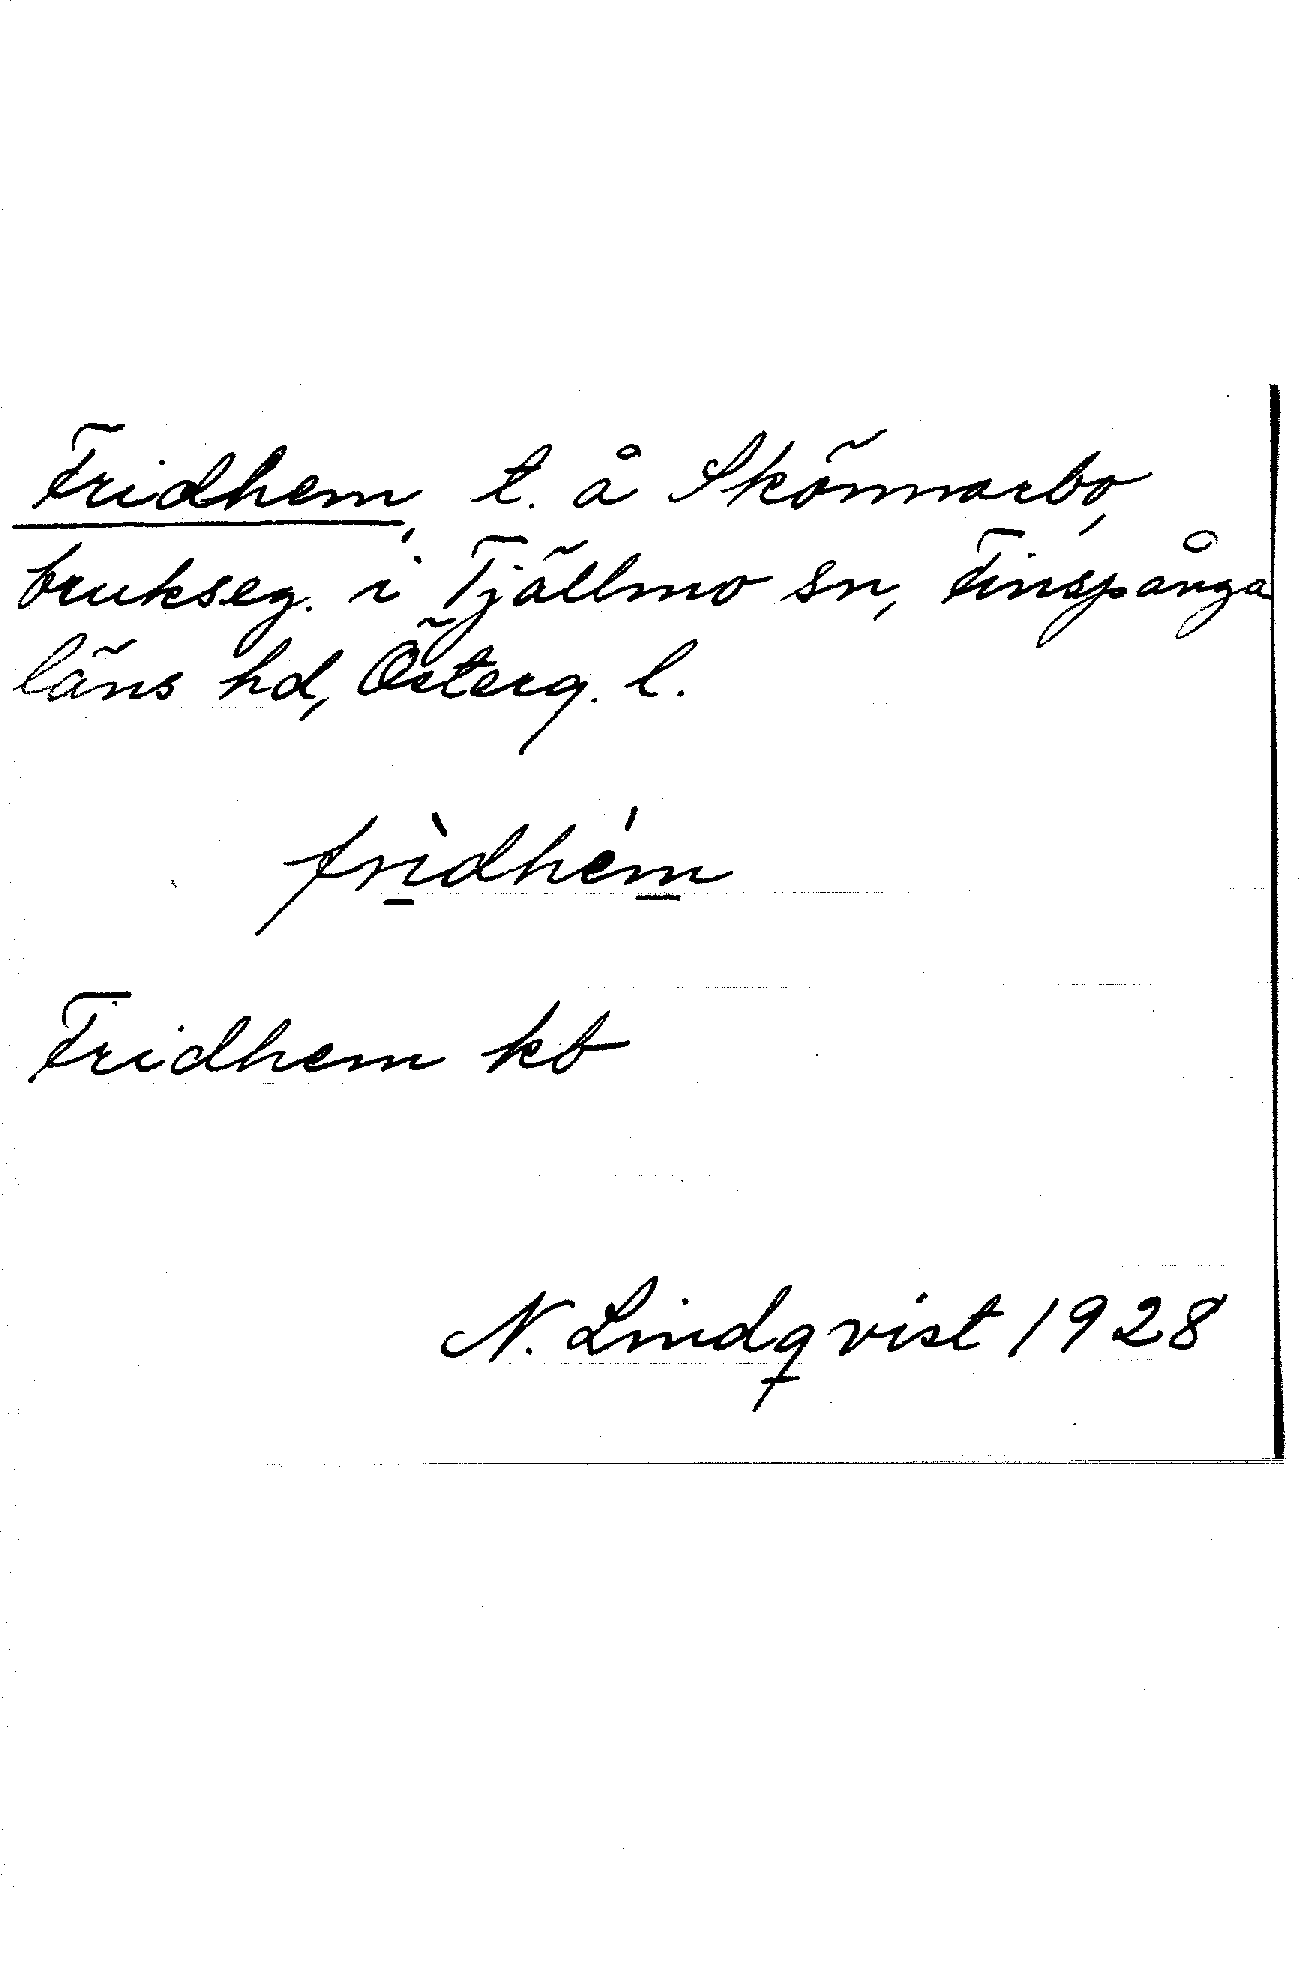 Fridhem, t. å Skönnarbo,
brukseg. i Tjällmo sn, Finspånga
läns hd, Österg. l.
frìdhém
Fridhem kb
N. Lindqvist 1928